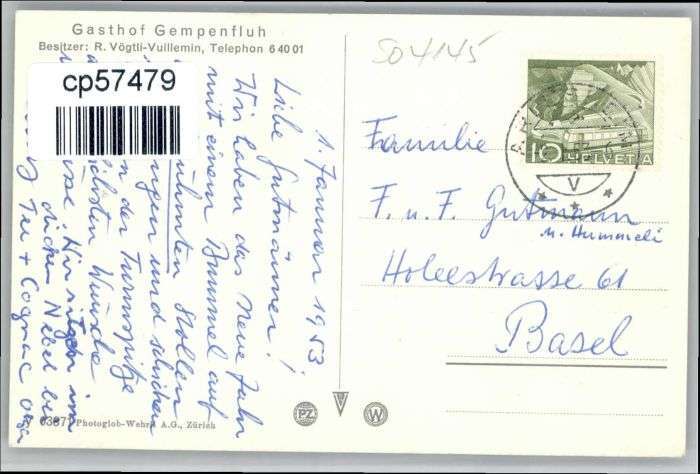 Gasthof Gempenfluh
Besitzer: R. Vögtli-Vuillemin, Telephon 6 40 01
cp57479
SO4145
10 HELVETIA
V
1. Januar 1953
Liebe Gutmänner!
Wir haben das Neue Jahr
mit einem Bummel auf
ühmten Stollen
ngen und schicken
von der Turmspitze
lichsten Wünsche
Wir sitzen im
dicken Nebel bei
Tee + Cognac
Familie
F. u. F. Gutmann
u. Hummeli
Holeestrasse 61
Basel
Photoglob-Wehrli A.G., Zürich
PZ
W